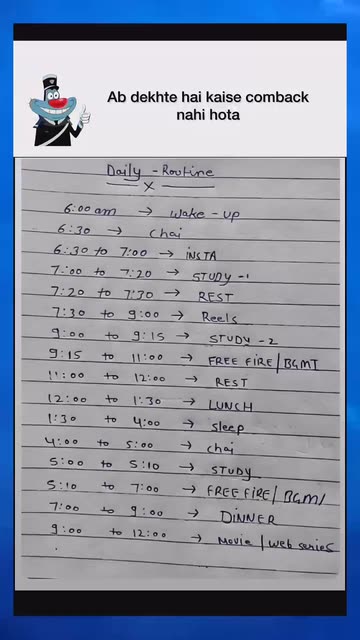 Ab dekhte hai kaise comback
nahi hota
Daily - Routine
x
6:00 am → wake-up
6:30 → chai
6:30 to 7:00 → INSTA
7:00 to 7:20 → STUDY-1
7:20 to 7:30 → REST
7:30 to 9:00 → Reels
9:00 to 9:15 → STUDY-2
9:15 to 11:00 → FREE FIRE/BGMI
11:00 to 12:00 → REST
12:00 to 1:30 → LUNCH
1:30 to 4:00 → Sleep
4:00 to 5:00 → chai
5:00 to 5:10 → STUDY
5:10 to 7:00 → FREE FIRE/BGMI
7:00 to 9:00 → DINNER
9:00 to 12:00 → Movie/web series